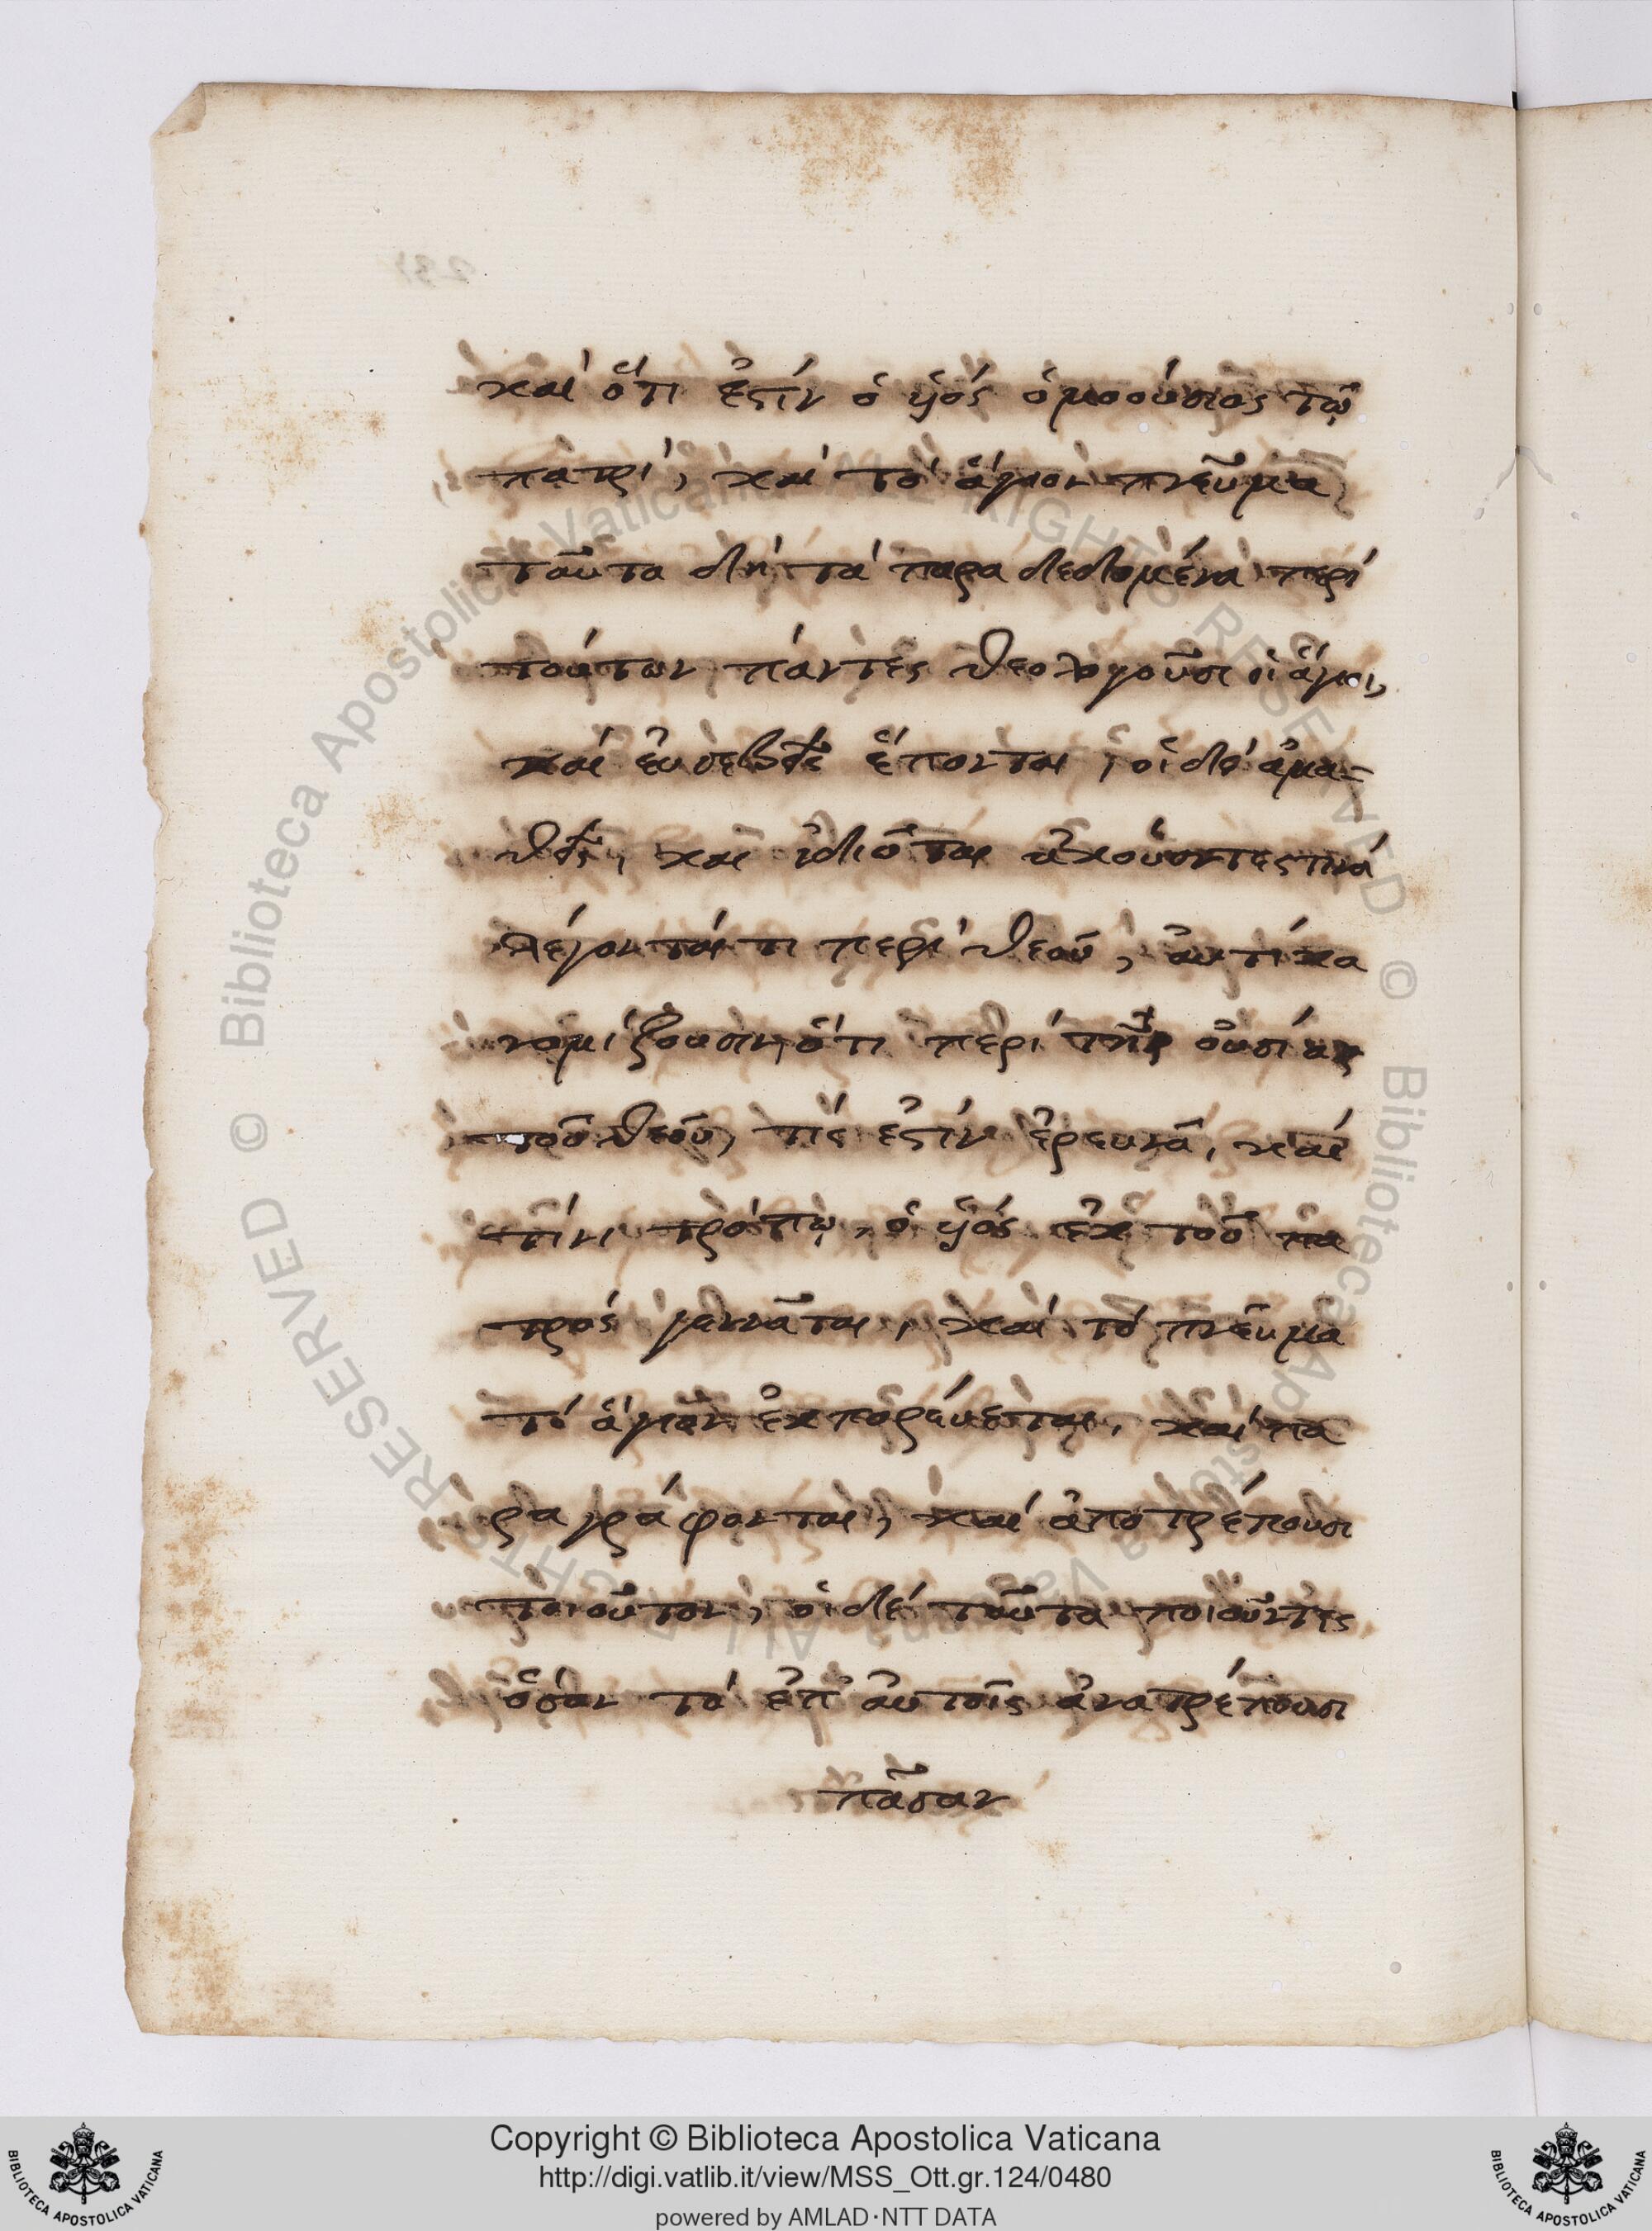 καὶ ὅτι ἐστίν ὁ υἱός ὁμοούσιος τῷ
πατρί, καὶ τὸ ἅγιον πνεῦμα
ταῦτα δὴ τὰ παραδεδομένα περί
τούτων πάντες θεολογοῦσι οἱ ἅγιοι,
καὶ εὐσεβεῖς ἕπονται, οἱ δὲ ἀμα-
θεῖς, καὶ ἰδιῶται ἀκούοντες τινά
λέγοντά τι περί θεοῦ, αὐτίκα
νομίζουσιν ὅτι περί τῆς οὐσίας
τοῦ θεοῦ, τίς ἐστίν ἐρευνᾶ, καί
τίνι τρόπῳ, ὁ υἱός ἐκ τοῦ πα
τρός γεννᾶται, καὶ τὸ πνεῦμα
τό ἅγιον ἐκπορεύεται, καὶ πα
ραγράφονται, καὶ ἀποτρέπουσι
τοιοῦτον, οἱ δέ ταῦτα ποιοῦντες
ὅσον τό ἐπ' αὐτοῖς ἀνατρέπουσι
πᾶσαν
Copyright © Biblioteca Apostolica Vaticana
http://digi.vatlib.it/view/MSS_Ott.gr.124/0480
powered by AMLAD·NTT DATA
BIBLIOTECA APOSTOLICA VATICANA
BIBLIOTECA APOSTOLICA VATICANA
© Biblioteca Apostolica Vaticana ALL RIGHTS RESERVED
© Biblioteca Apostolica Vaticana ALL RIGHTS RESERVED